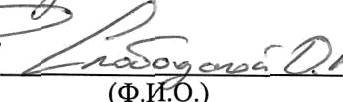 Слободской О.
(Ф.И.О.)